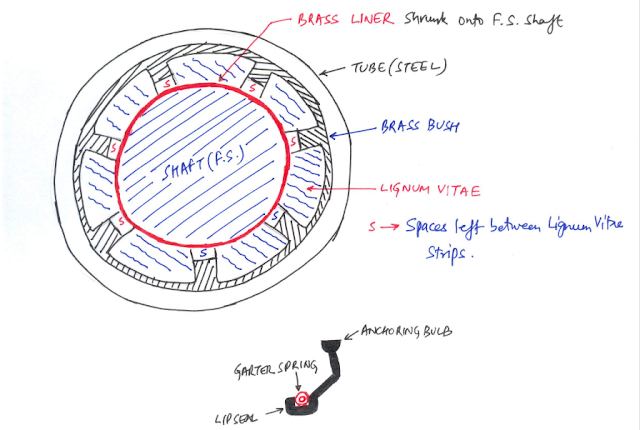 BRASS LINER shrunk onto F.S. shaft
TUBE (STEEL)
BRASS BUSH
SHAFT (F.S.)
LIGNUM VITAE
S → Spaces left between Lignum Vitae
strips.
S
S
S
S
S
S
S
ANCHORING BULB
GARTER SPRING
LIP SEAL